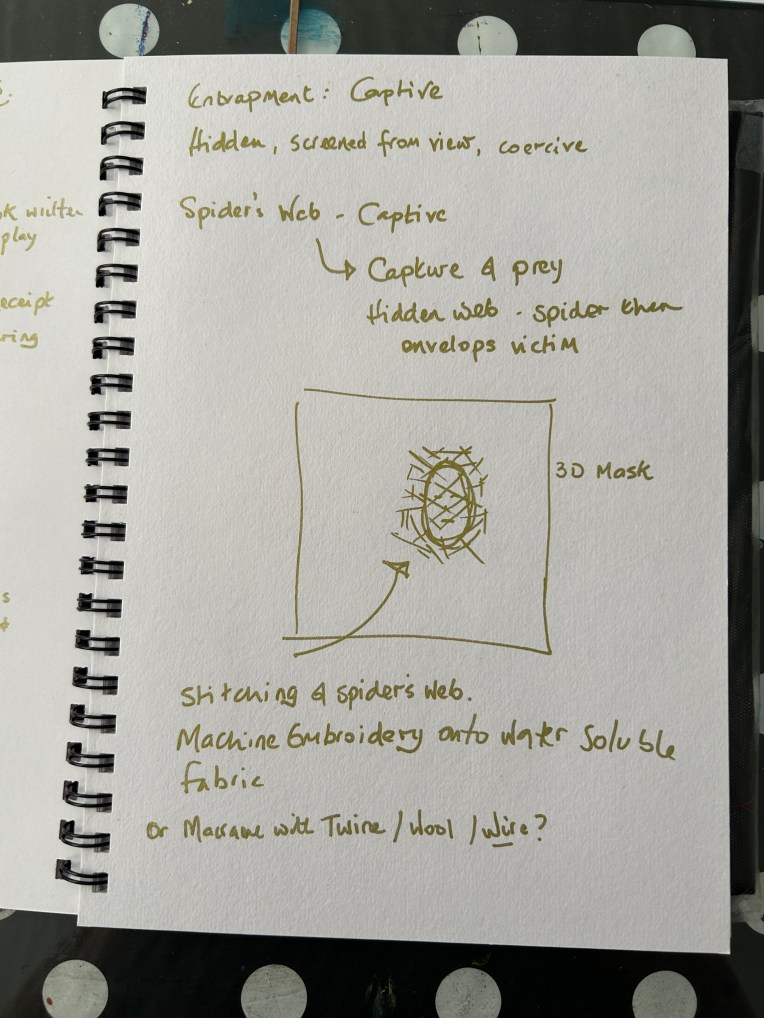 k written
play
eceipt
ring
s
Entrapment: Captive
Hidden, screened from view, coercive
Spider's Web - Captive
Capture & prey
Hidden web - spider then
envelops victim
3D Mask
Stitching & spider's web.
Machine Embroidery onto water soluble
fabric
or Macrame with Twine / Wool / Wire?